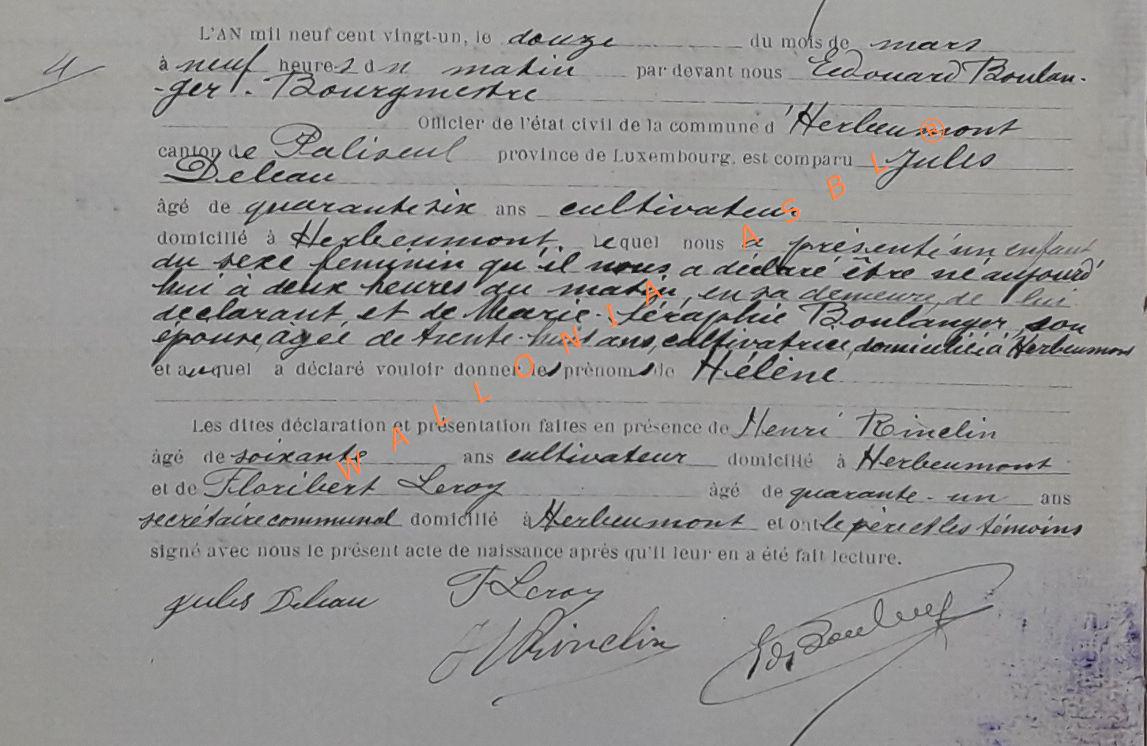 L'AN mil neuf cent vingt-un, le douze du mois de mars
4
à neuf heures du matin par devant nous Edouard Boulan-
-ger. Bourgmestre
Officier de l'état civil de la commune d'Herbeumont
canton de Paliseul province de Luxembourg, est comparu Jules
Deleau
âgé de quarante six ans cultivateur
domicilié à Herbeumont, lequel nous a présenté un enfant
du sexe féminin qu'il nous a déclaré être né aujourd'
hui à deux heures du matin, en sa demeure, de lui
déclarant et de Marie-Séraphie Boulanger, son
épouse, âgée de trente-huit ans, cultivatrice, domiciliée à Herbeumont
et auquel a déclaré vouloir donner les prénoms de Hélène
Les dites déclaration et présentation faites en présence de Henri Rinclin
âgé de soixante ans cultivateur domicilié à Herbeumont
et de Floribert Leroy âgé de quarante-un ans
secrétaire communal domicilié à Herbeumont et ont le père et les témoins
signé avec nous le présent acte de naissance après qu'il leur en a été fait lecture.
Jules Deleau F Leroy
H Rinclin Ed. Boulanger
WALLONIA ASBL @